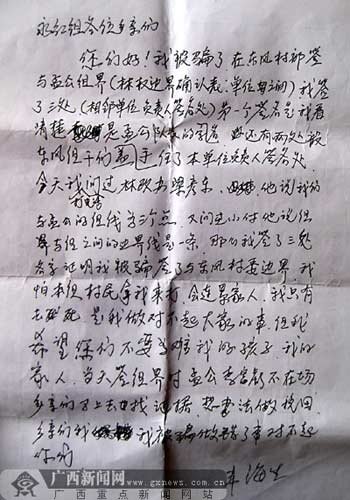 永红组各位乡亲们
您们好!我被骗了在东风村部签
与孟公组界(林权边界确认表,单位
了三处(相邻单位负责人签名处)第一个签名是我看
清楚是孟公队的 还有两处被
东风组干们盖手住了本单位负责人签名处
今天我问过林改办梁彦东 他说我的
与孟公的组线 又问过小付他说组
与组之间的边界线是一条,那么我签了三处
名字证明我被骗签了与东风村委边界,我
怕本组村民拿我来打,会连累家人,我只有
去死,是我做对不起大家的事,但我
希望您们不要为难我的孩子,我的
家人,当天签组界时孟公李 不在场
乡亲们马上去找证据 想办法做挽回.
乡亲们我 我被骗做错了事对不起
你们
海
广西新闻网
www.gxnews.com.cn
广西重点新闻网站